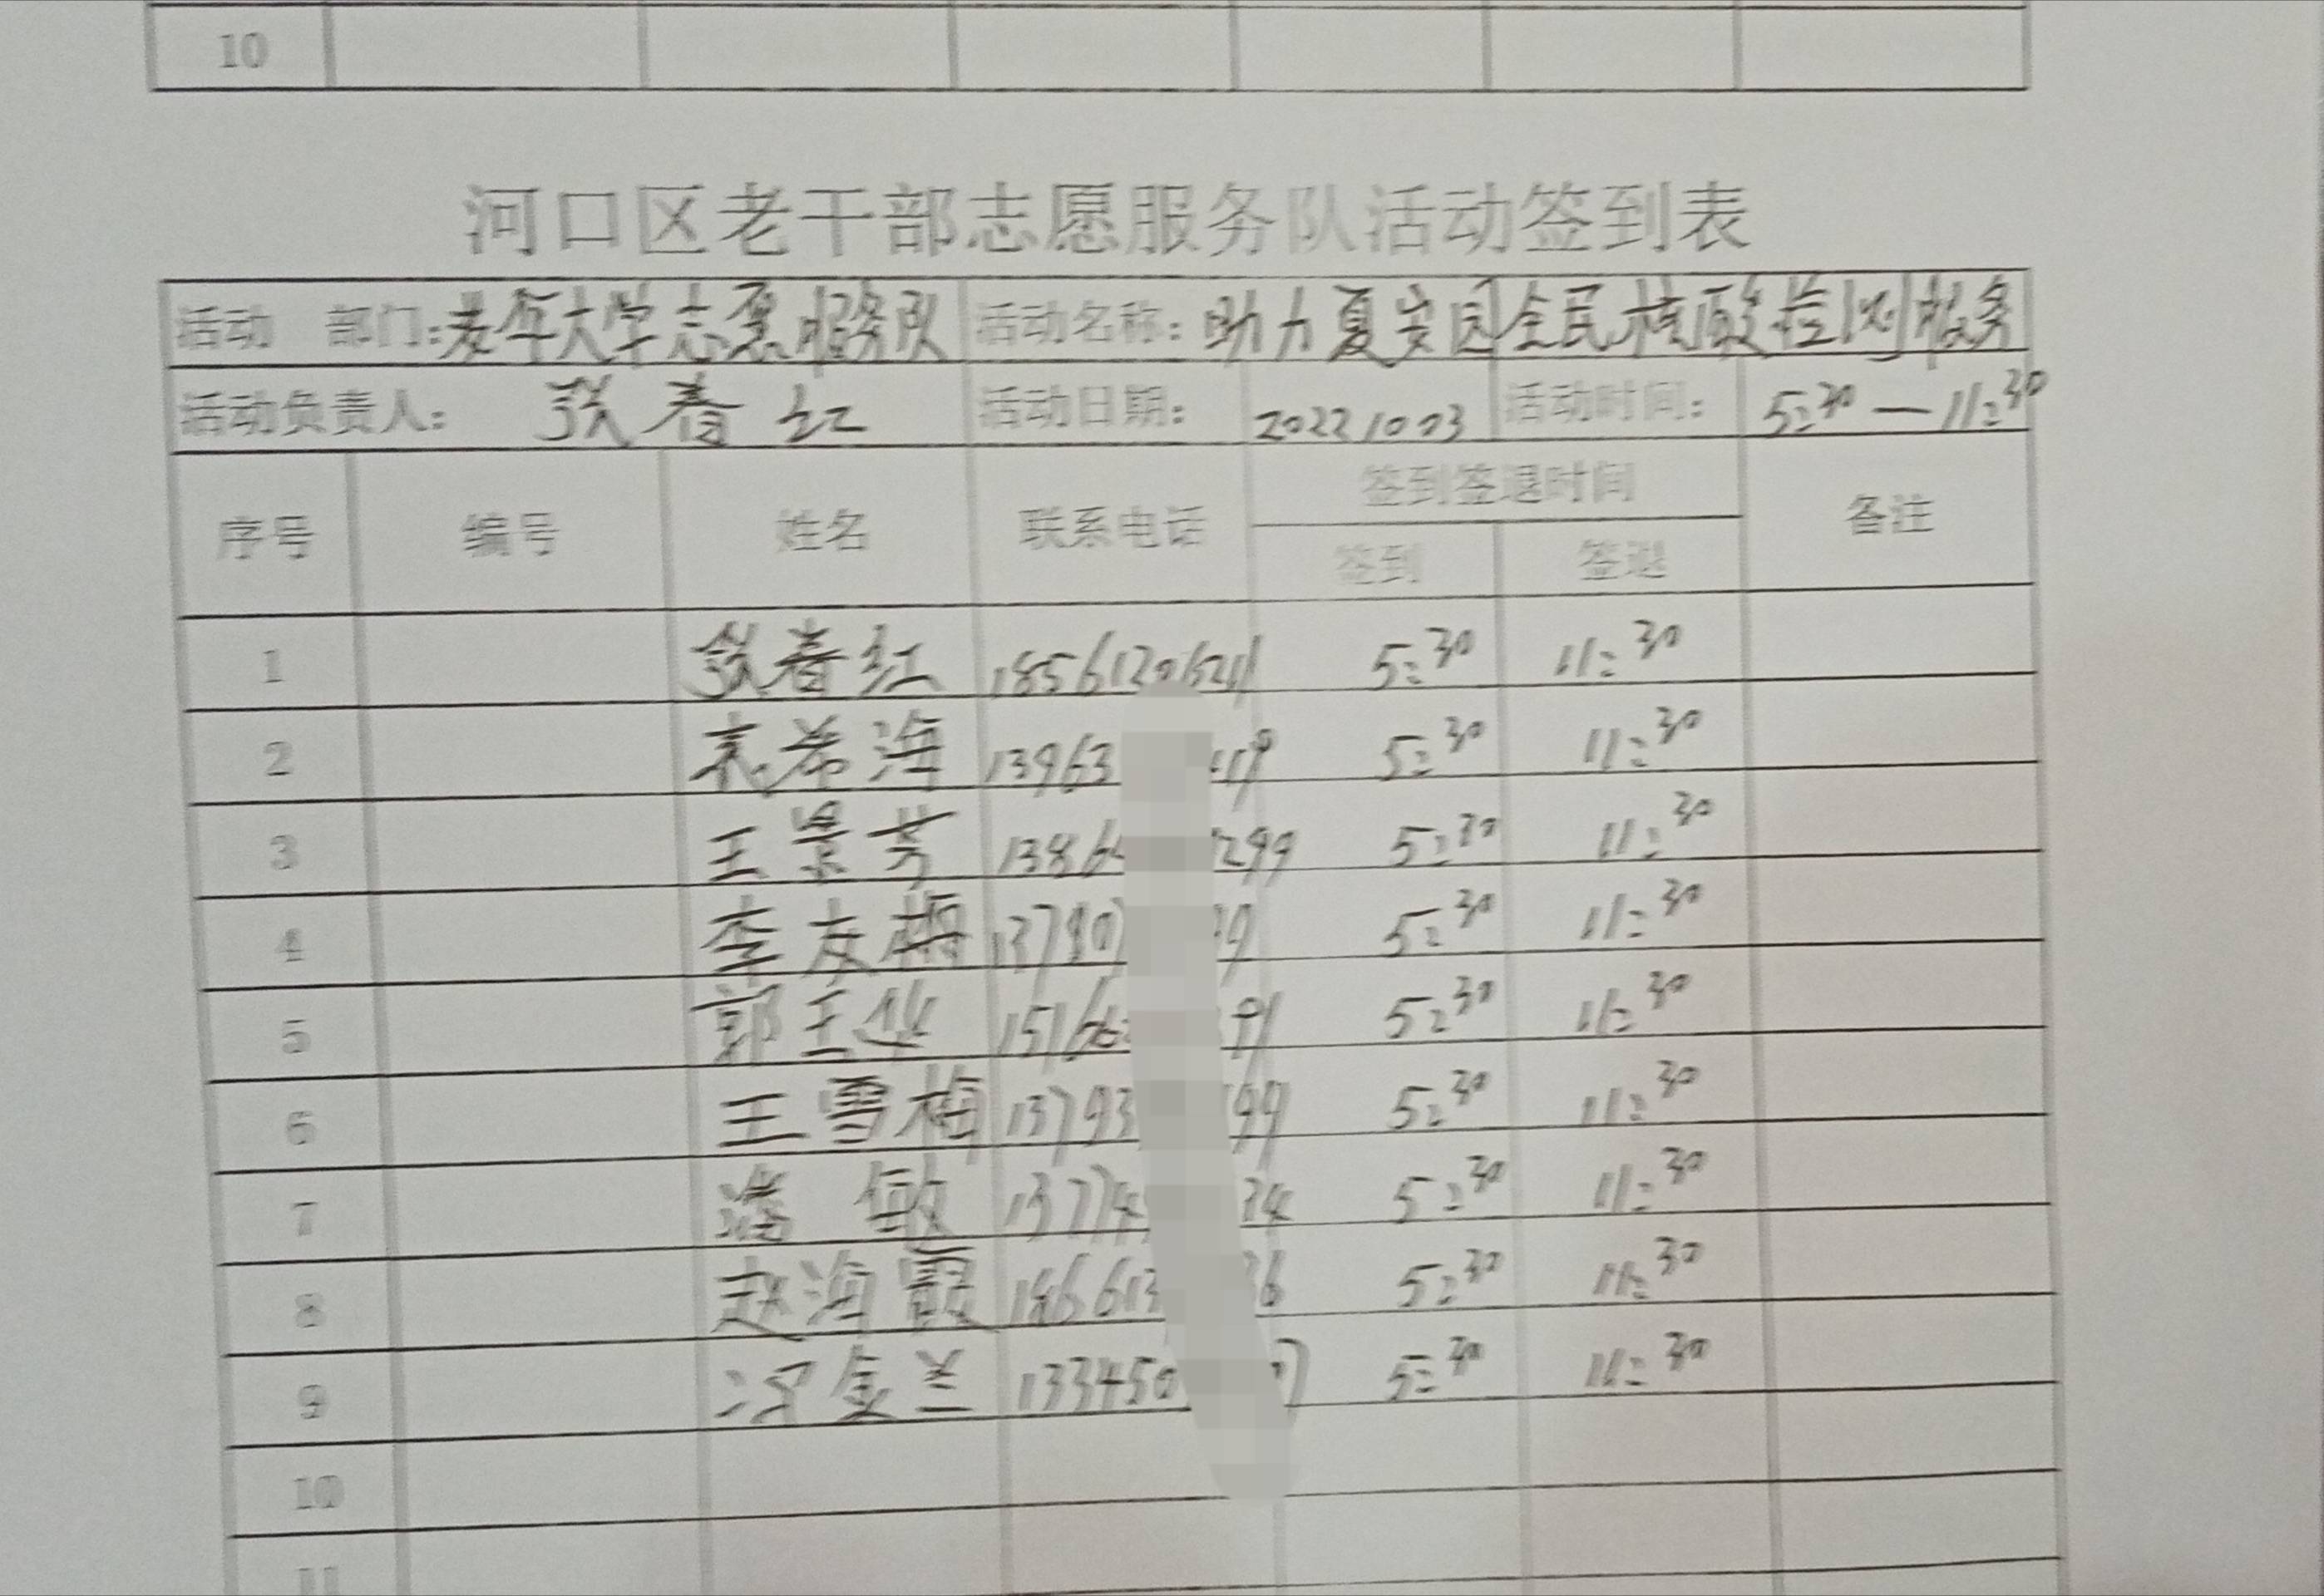 10
河口区老干部志愿服务队活动签到表
活动 部门: 老年大学志愿服务队 活动名称: 助力夏安园全民核酸检测服务
活动负责人: 张春红 活动日期: 20221003 活动时间: 5:30—11:30
序号 编号 姓名 联系电话 签到签退时间 备注
签到 签退
1 张春红 5:30 11:30
2 希海 13963 5:30 11:30
3 王景芳 1386 299 5:30 11:30
4 李友梅 13780 99 5:30 11:30
5 郭玉华 1516 91 5:30 11:30
6 王雪梅 13793 99 5:30 11:30
7 潘敏 1377 34 5:30 11:30
8 赵海霞 186613 36 5:30 11:30
9 况金兰 133450 07 5:30 11:30
10
11